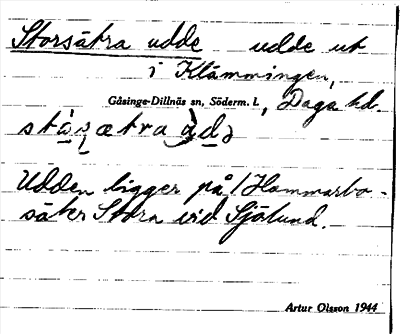 Storsätra udde udde ut
i Klämmingen,
Gåsinge-Dillnäs sn, Söderm. l., Daga hd.
Udden ligger på Hammarbo-
säter Stora vid Sjölund.
Artur Olsson 1944